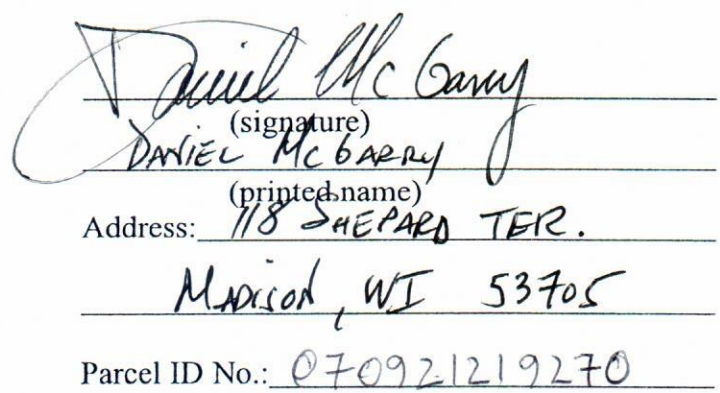 Daniel McGarry
(signature)
DANIEL McGARRY
(printed name)
Address: 118 SHEPARD TER.
MADISON, WI 53705
Parcel ID No.: 070921219270